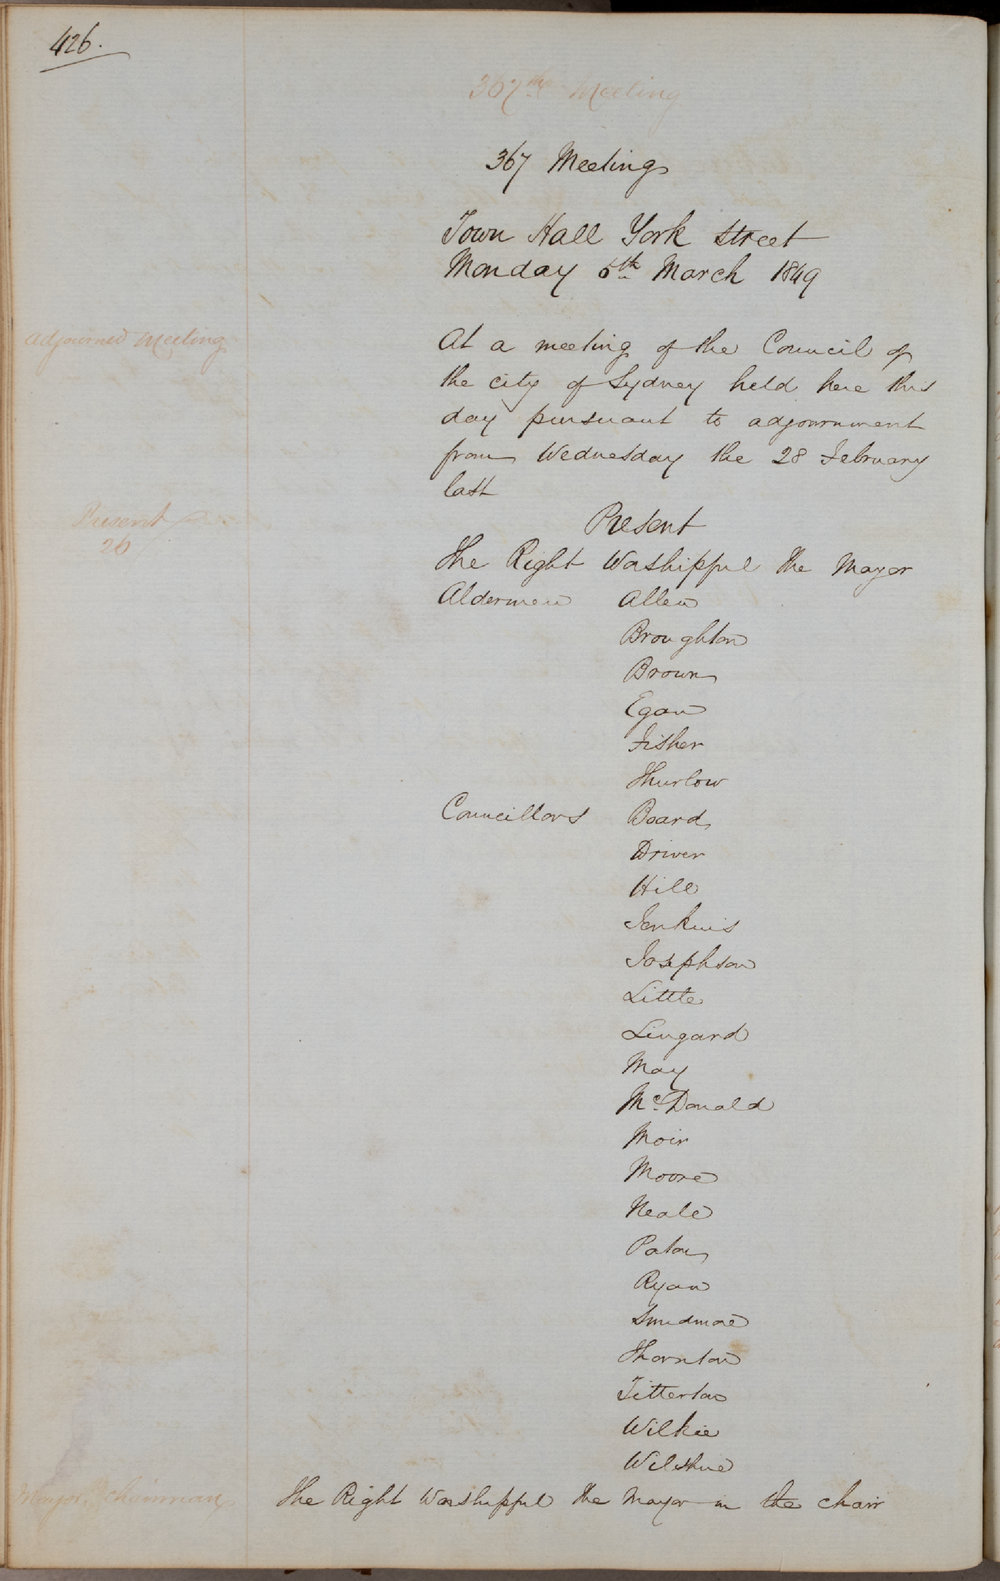 426.
367th Meeting
367 Meeting
Town Hall York Street
Monday 5th March 1849
Adjourned Meeting
At a meeting of the Council of
the city of Sydney held here this
day pursuant to adjournment
from Wednesday the 28 February
last
Present
26
Present
The Right Worshipful the Mayor
Aldermen Allen
Broughton
Brown
Egan
Fisher
Thurlow
Councillors Board
Driver
Hill
Jenkins
Josephson
Little
Lingard
May
McDonald
Moir
Moore
Neale
Paton
Ryan
Smidmore
Thornton
Titterton
Wilkie
Wilshire
Mayor, Chairman
The Right Worshipful the Mayor in the chair